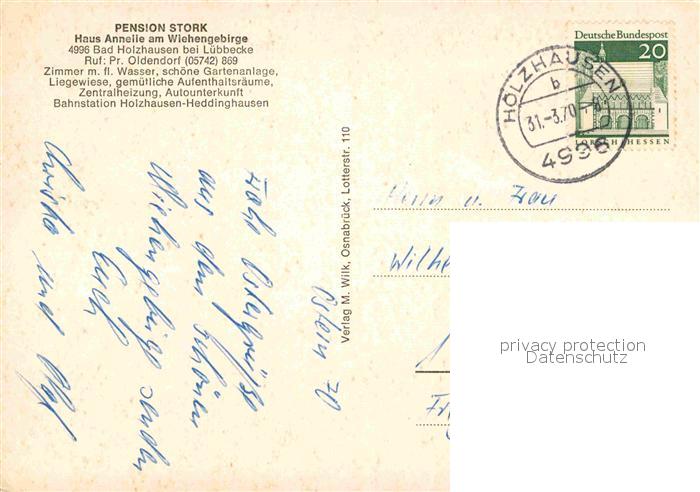 PENSION STORK
Haus Annelie am Wiehengebirge
4996 Bad Holzhausen bei Lübbecke
Ruf: Pr. Oldendorf (05742) 869
Zimmer m. fl. Wasser, schöne Gartenanlage,
Liegewiese, gemütliche Aufenthaltsräume,
Zentralheizung, Autounterkunft
Bahnstation Holzhausen-Heddinghausen
Deutsche Bundespost
20
LORSCH/HESSEN
HOLZHAUSEN
b
31.-3.70
4996
Verlag M. Wilk, Osnabrück, Lotterstr. 110
Ostern 70
Frohe Ostergrüße
aus dem schönen
Wiehengebirge senden
Euch
Christa und
Herrn u. Frau
Wilhe
privacy protection
Datenschutz